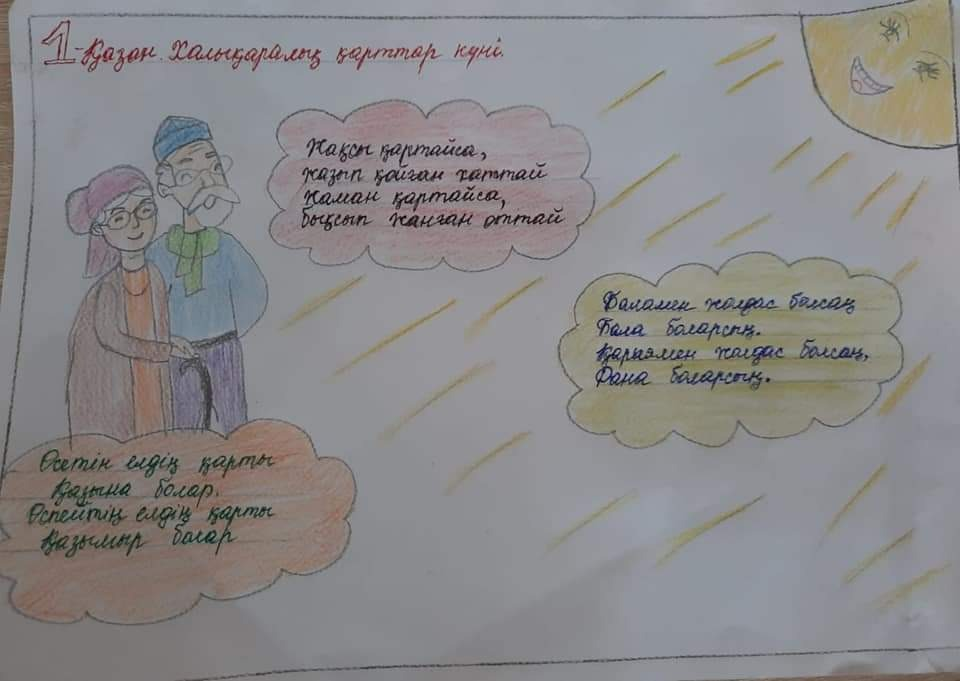 1-Қазан. Халықаралық қарттар күні.
Жақсы қартайса,
жазып қойған хаттай
Жаман қартайса,
бықсып жанған оттай
Баламен жолдас болсаң
Бала боларсың.
Қариямен жолдас болсаң,
Дана боларсың.
Өсетін елдің қарты
Қазына болар.
Өспейтің елдің қарты
Қазымыр болар